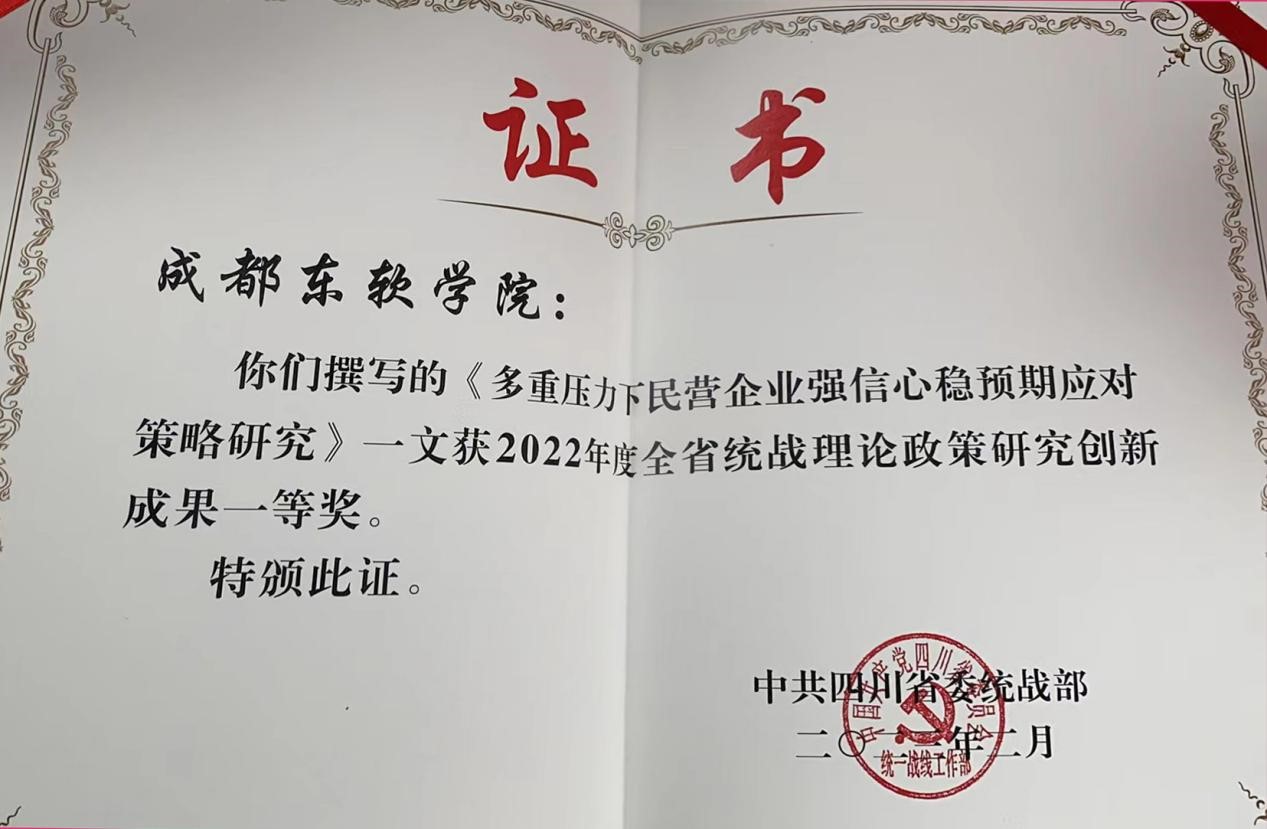 证书
成都东软学院：
你们撰写的《多重压力下民营企业强信心稳预期应对
策略研究》一文获2022年度全省统战理论政策研究创新
成果一等奖。
特颁此证。
中共四川省委统战部
二〇二三年二月
中国共产党四川省委员会
统一战线工作部